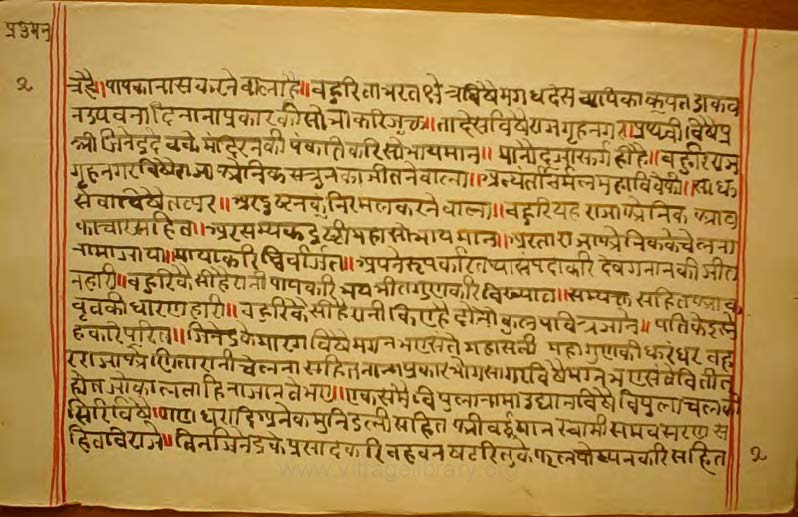 प्रद्युम्न
२
त्रहै॥ पापका नास करने वाला है॥ बहुरि ता भरतक्षेत्र विषै मगध देस वापिका कूप तडाक व
न उपवनादि नाना प्रकार की सोभा करि जुक्त॥ ता देस विषै राजगृह नगर पृथ्वी विषै प्र
श्री जिनेंद्रदेव के मंदिरन की पंकति करि सोभायमान॥ मानौ दूजा स्वर्ग ही है॥ बहुरि राज
गृह नगर विषै राजा श्रेनिक सत्रुन का जीतने वाला॥ अत्यंत निर्मल महा विवेकी॥ साध
सेवा विषै तत्पर॥ निरमल करने वाला॥ बहुरि यह राजा श्रेनिक श्राव
काचार सहित॥ अर सम्यक दृष्टी महा सोभायमान॥ अर ता राजा श्रेनिक के चेलना
नामा जाया॥ माया करि विवर्जित॥ अपने रूप करि तथा संपदा करि देवगनान की जीत
नहारी॥ बहुरि कैसी है रानी पाप करि भयभीत गुण करि विख्यात॥ सम्यक्त सहित श्रावक
वृत की धारणहारी॥ बहुरि कैसी है रानी दोनौ कुल पवित्र जाने॥ पति के
ह करि पूरित॥ जिनेंद्र के मारग विषै मगन महासती महा गुण की धरंधर बहु
रि राजा श्रेणित रानी चेलना सहित नाना प्रकार भोग सागर विषै मग्न भए संते वितीत
होत जो काल ताहि न जानते भए॥ एक समै विपुला नामा उद्यान विषै विपुलाचल की
सिरि विषै॥ गणधरादि अनेक मुनिंद्र सहित श्री वर्द्धमान स्वामी समवसरण स
हित विराजे॥ तिन जिनेंद्र के प्रसाद करि वह वन षट रितु के फल करि सहित
२
www.vitragelibrary.org